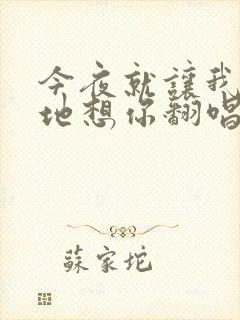 今夜就讓我
地想你翻唱
蘇家坨